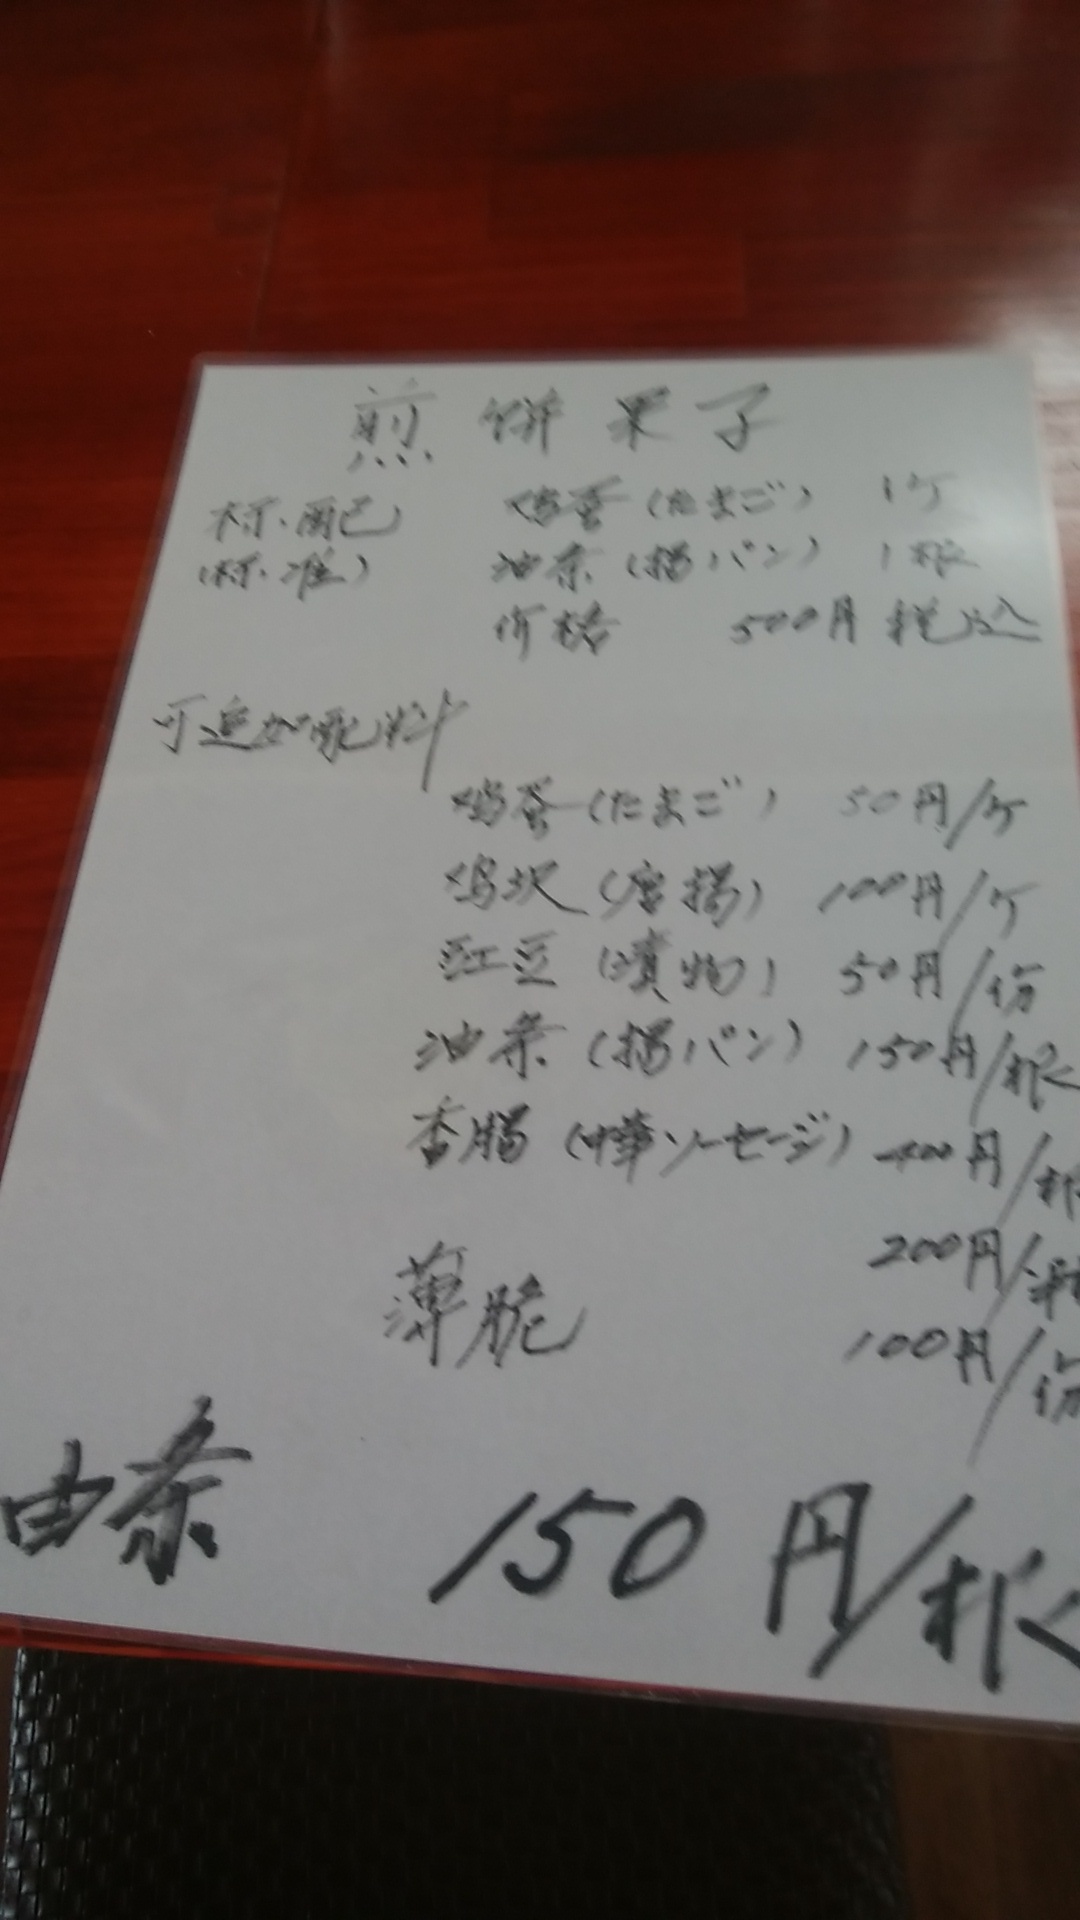 煎饼果子
标配 鸡蛋(たまご) 1ケ
(标准) 油条(揚パン) 1根
价格 500円 税込
可追加配料
鸡蛋(たまご) 50円/ケ
鸡块(唐揚) 100円/ケ
豇豆(漬物) 50円/份
油条(揚パン) 150円/根
香腸(中華ソーセージ) 400円/根
200円/半根
薄脆 100円/份
由条 150円/根